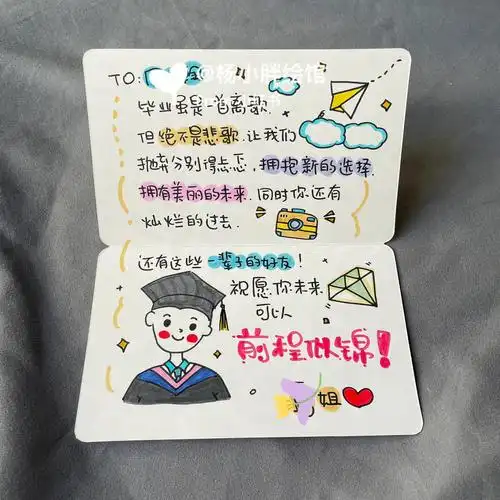 @杨小胖绘馆
TO:
毕业虽是一首离歌.
但绝不是悲歌.让我们
抛弃分别得忧愁,拥抱新的选择.
拥有美丽的未来.同时你还有
灿烂的过去.
还有这些一辈子的好友!
祝愿你未来
可以
前程似锦!
姐